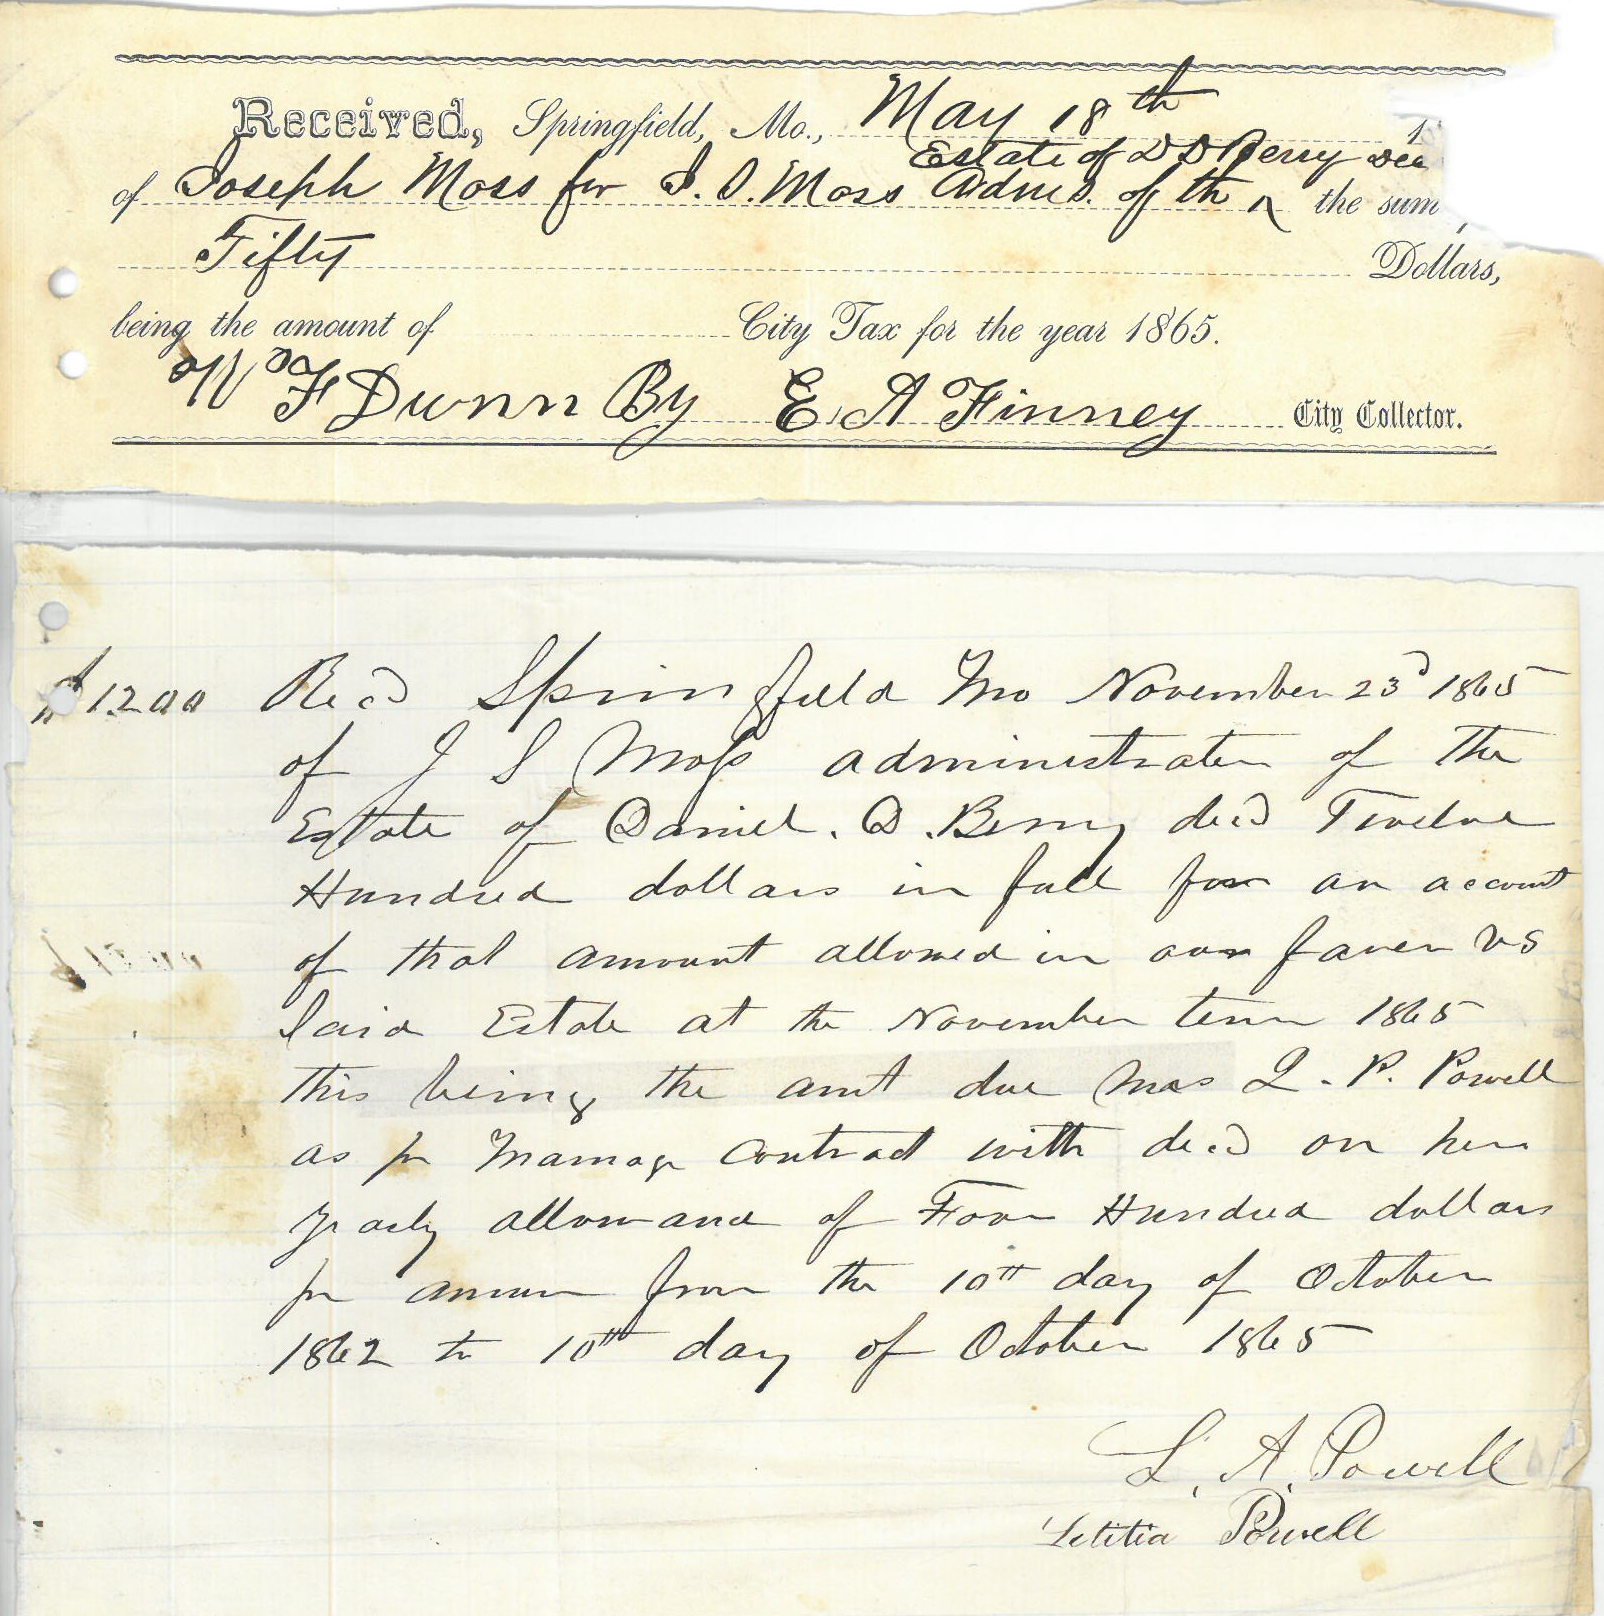 Received, Springfield, Mo., May 18th 1
Estate of D D Berry Dec
of Joseph Moss for J. S. Moss Admr. of th ^ the sum
Fifty Dollars,
being the amount of City Tax for the year 1865.
Wm F Dunn By E. A Finney City Collector.
$1200 Recd Springfield Mo November 23d 1865
of J S Moss administrator of the
Estate of Daniel. D. Berry decd Twelve
Hundred dollars in full for an account
of that amount allowed in our favor vs
said Estate at the November term 1865
this being the amt due Mrs L. P. Powell
as pr Marriage contract with decd on her
yearly allowance of Four Hundred dollars
pr annum from the 10th day of October
1862 to 10th day of October 1865
L. A. Powell
Letitia Powell